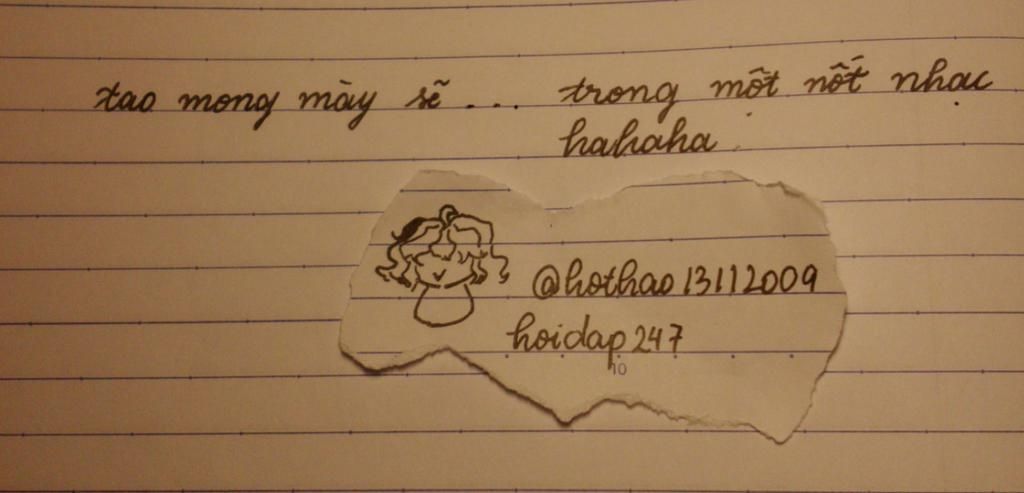 tao mong mày sẽ ... trong một nốt nhạc
hahaha.
@hothao13112009
hoidap247
10